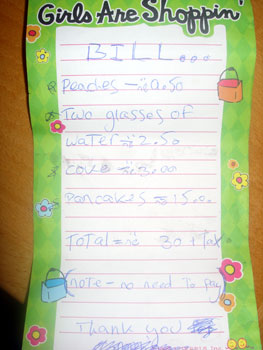 Girls Are Shoppin'
BILL...
Peaches - 0.50
Two glasses of
water = 2.50
Coke = 3.00
Pancakes = 15.00
Total = 30 + Tax
(note - no need to pay
Thank you